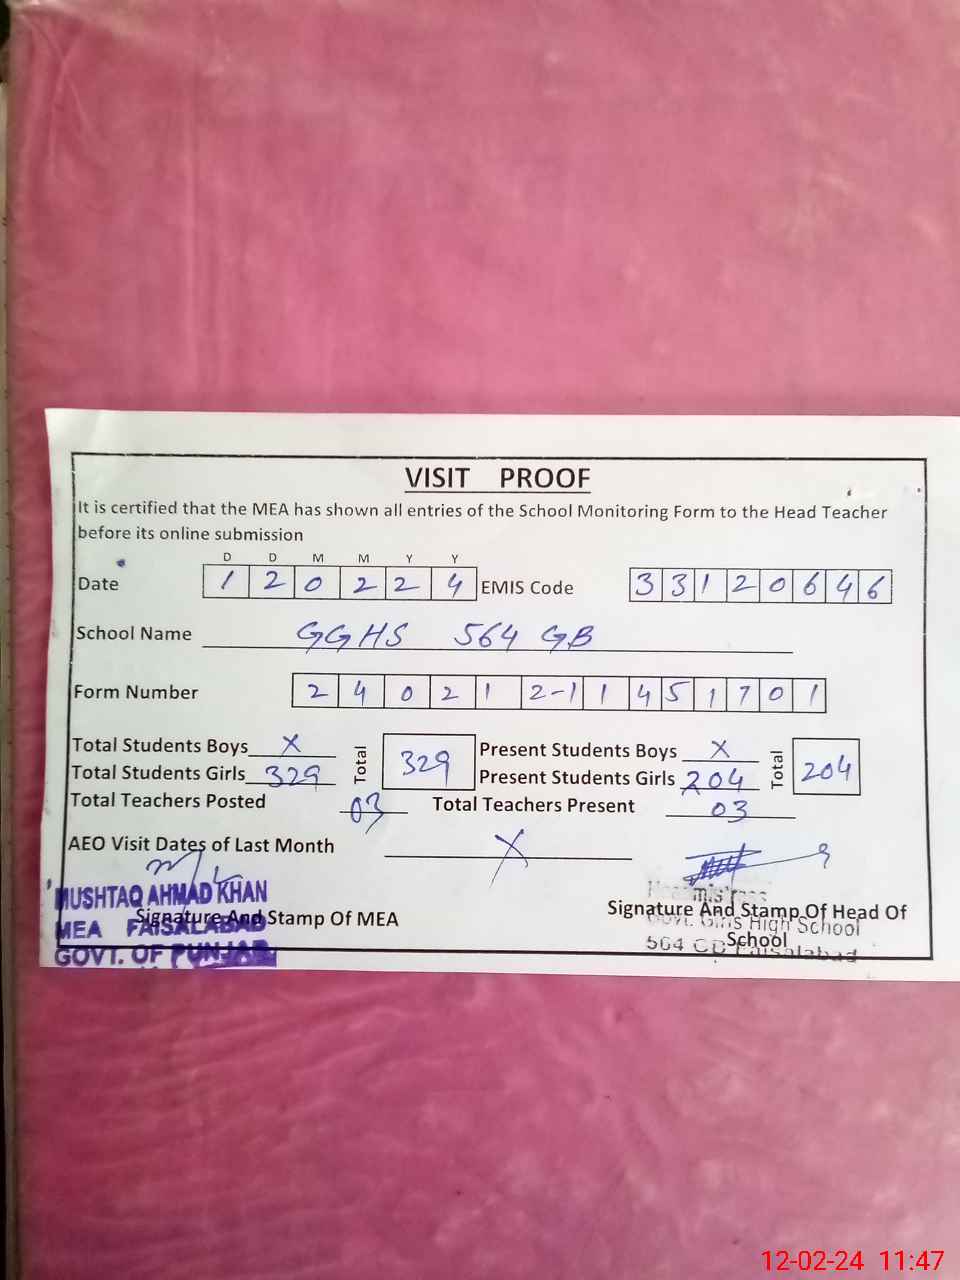 VISIT PROOF
It is certified that the MEA has shown all entries of the School Monitoring Form to the Head Teacher
before its online submission
D D M M Y Y
Date 1 2 0 2 2 4 EMIS Code 3 3 1 2 0 6 4 6
School Name GGHS 564 GB
Form Number 2 4 0 2 1 2-1 1 4 5 1 7 0 1
Total Students Boys X Total 329 Present Students Boys X Total 204
Total Students Girls 329 Present Students Girls 204
Total Teachers Posted 03 Total Teachers Present 03
AEO Visit Dates of Last Month X
MUSHTAQ AHMAD KHAN
MEA FAISALABAD
GOVT. OF PUNJAB
Signature And Stamp Of MEA
Signature And Stamp Of Head Of
School
Govt. Girls High School
564 GB Faisalabad
12-02-24 11:47